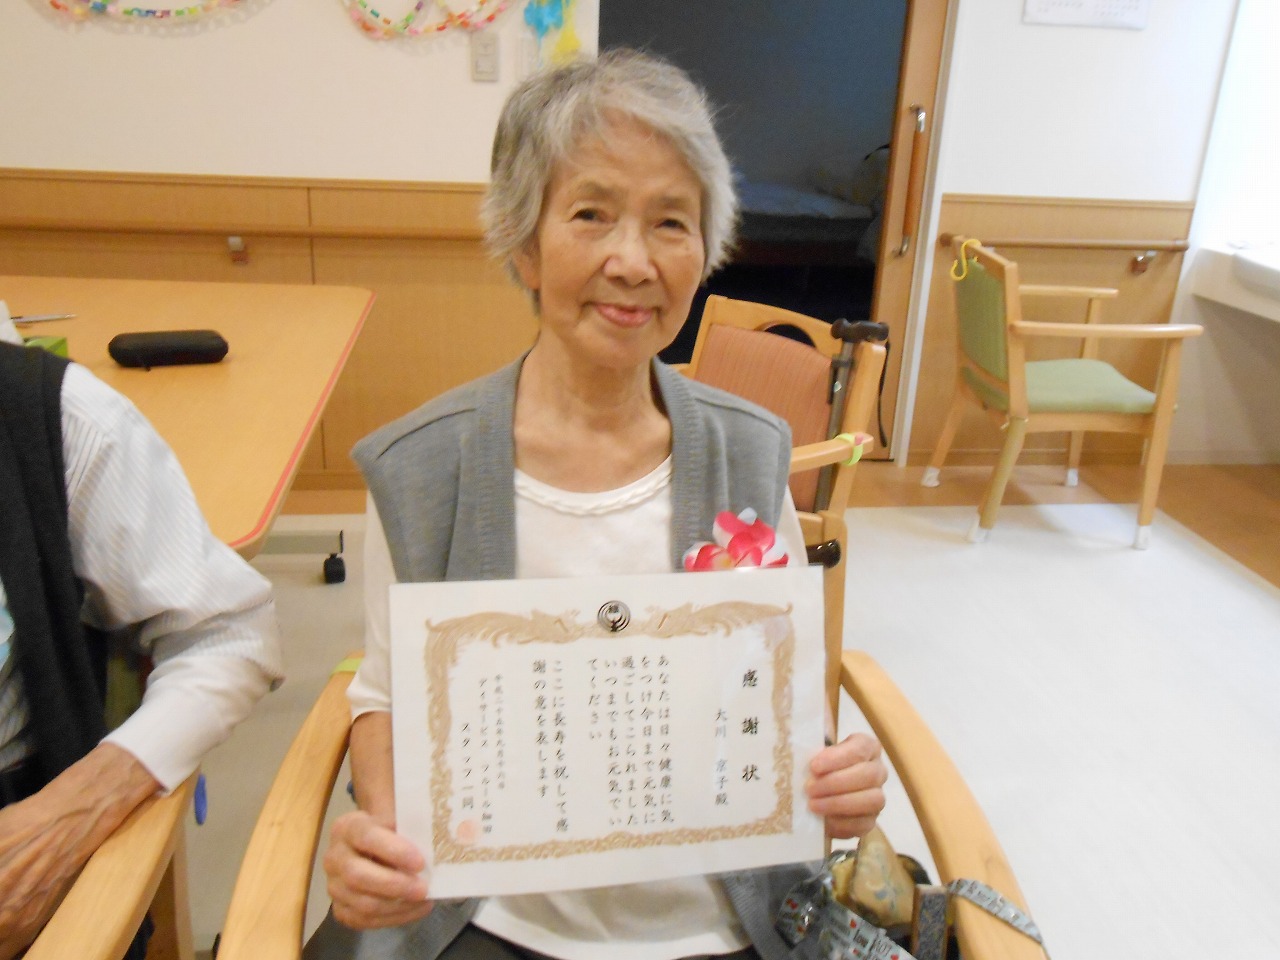 感謝状
大川 京子殿
あなたは日々健康に気
をつけ今日まで元気に
過ごしてこられました
いつまでもお元気でい
てください
ここに長寿を祝して感
謝の意を表します
平成二十五年九月十六日
デイサービス フルール細田
スタッフ一同